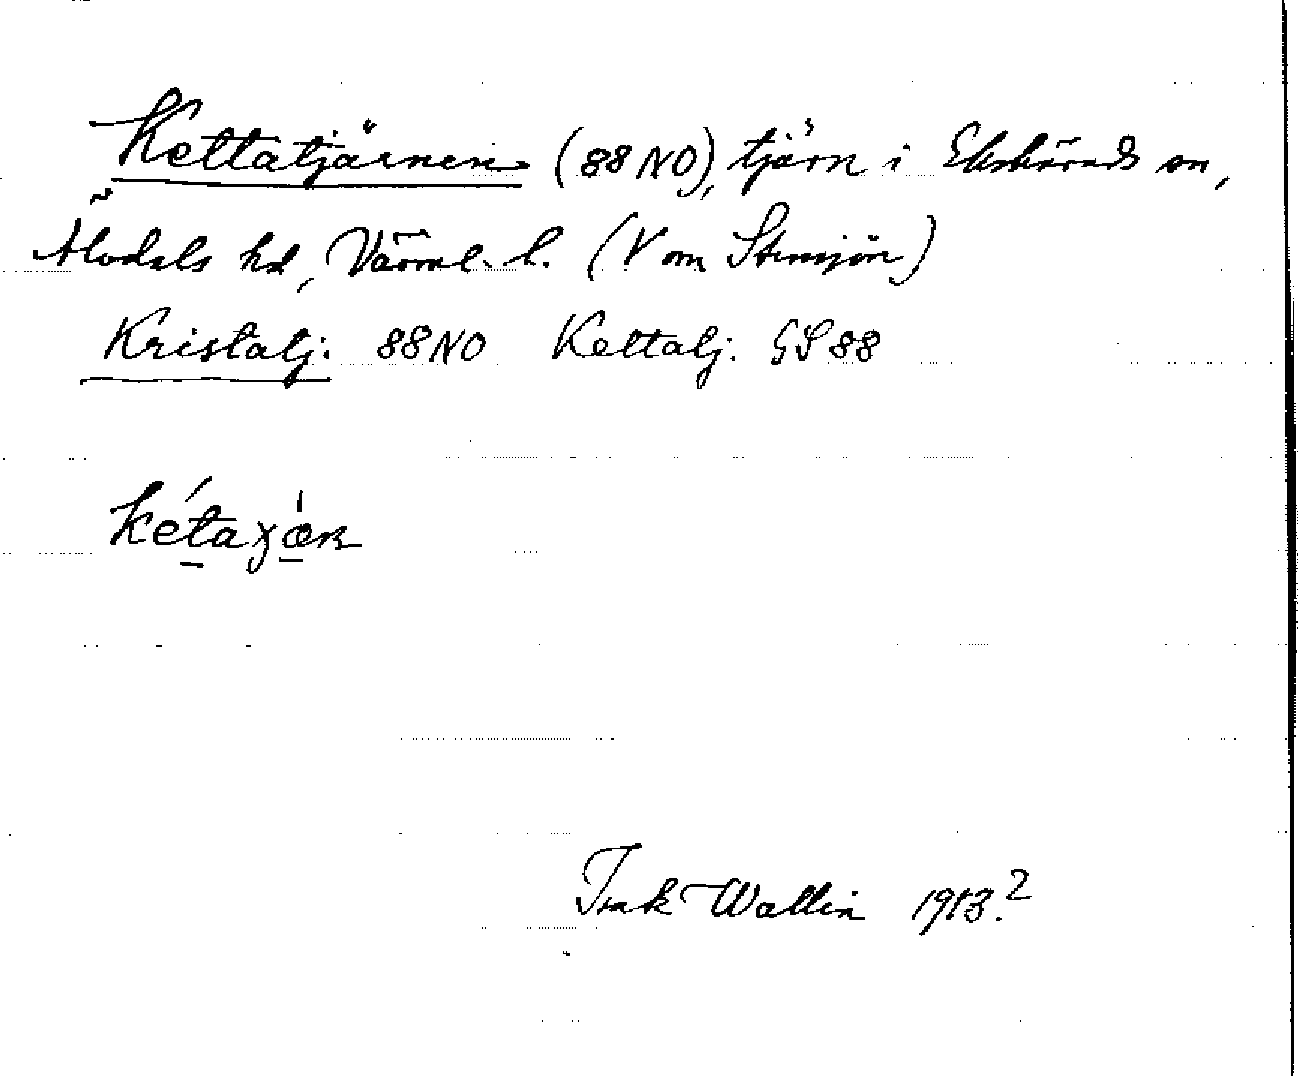 Kettatjärnen (88 NO), tjärn i Ekshärads sn,
Älvdals hd, Värml. l. (V om Stensjön)
Kristatj. 88 NO Kettatj. GS 88
kétaχæ̀ɳ
Isak Wallin 1913.?